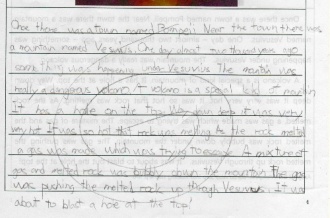 Once there was a town named Pompeii. Near the town there was
a mountain named Vesuvius. One day about two thousand years ago
something was happening under Vesuvius. The mountin was
really a dangerous volcano. A volcano is a special kind of mountain
It has a hole on the top. Way down deep it was very
very hot It was so hot that rock was melting As the rock melted
a gas was made which was trying to escape. A mixture of
gas and melted rock was bubbly down the mountain The gas
was pushing the melted rock up through Vesuvius. It was
about to blast a hole at the top!